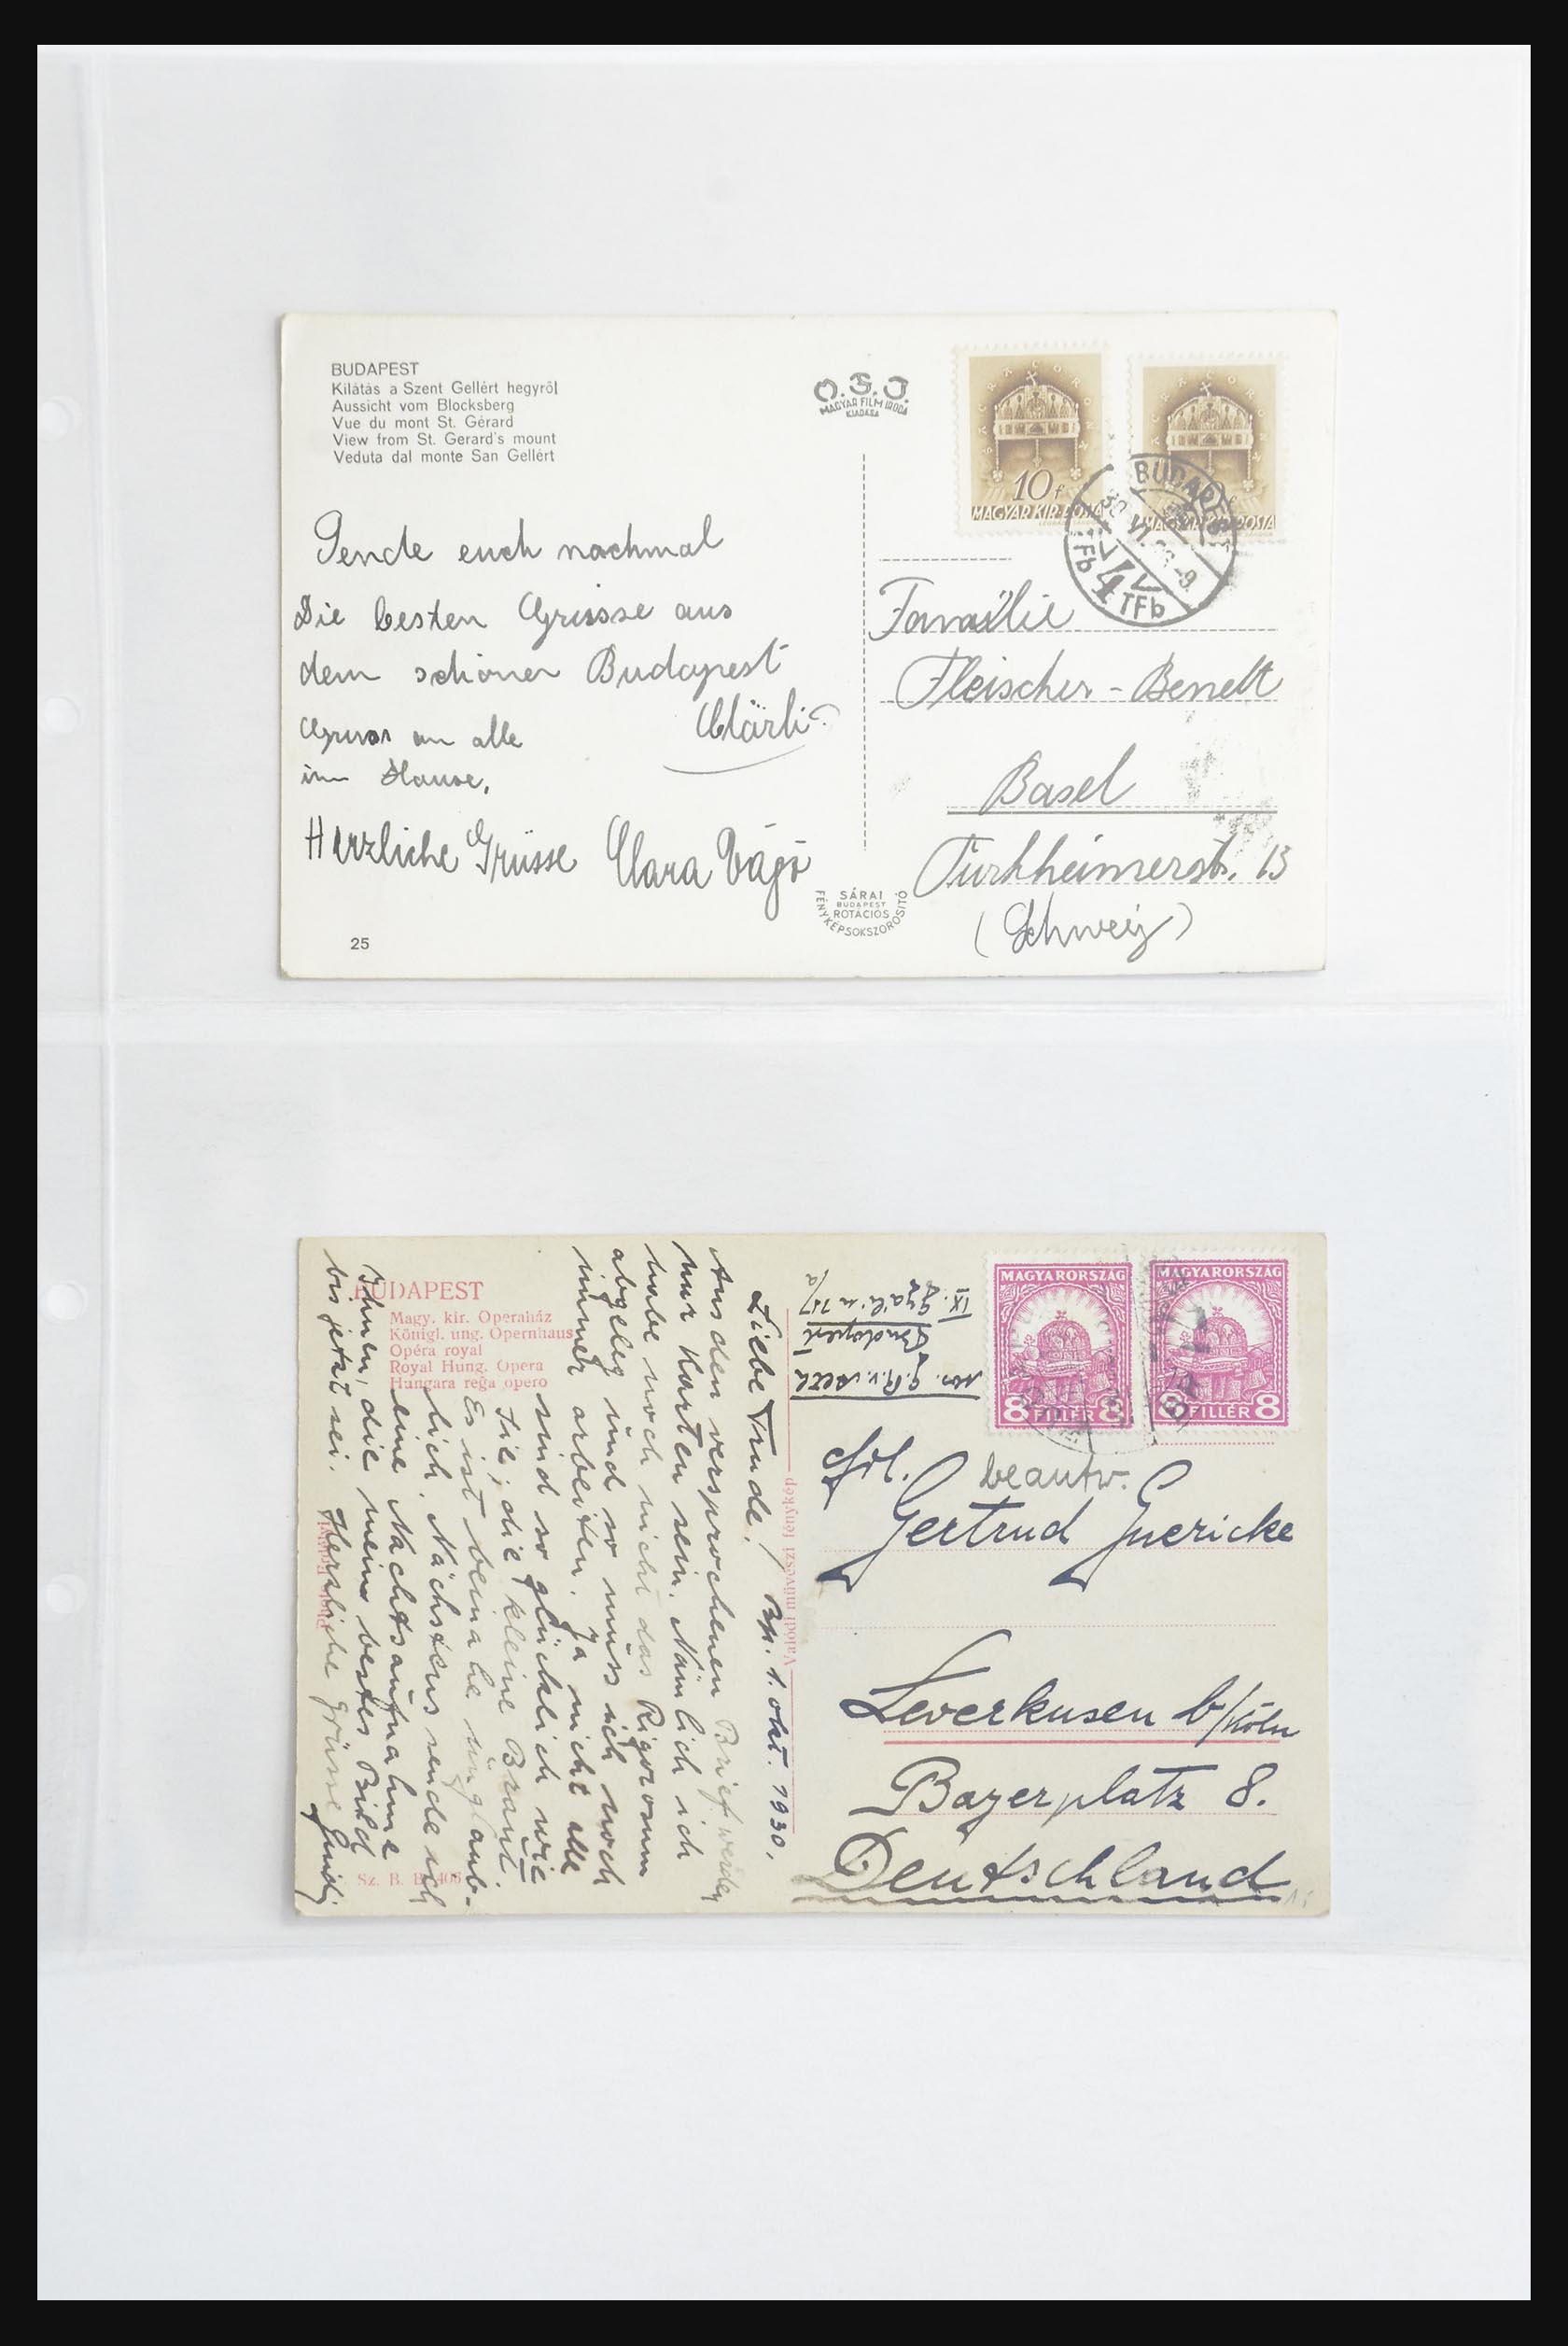 BUDAPEST
Kilátás a Szent Gellért hegyről
Aussicht vom Blocksberg
Vue du mont St. Gérard
View from St. Gerard's mount
Veduta dal monte San Gellért
O.S.J.
MAGYAR FILM IRODA
KIADÁSA
SACRA CORONA
10f
MAGYAR KIR. POSTA
SACRA CORONA
MAGYAR KIR. POSTA
BUDAPEST
4
TFb
Sende euch nochmal
Die besten Grüsse aus
dem schönen Budapest
Gruss an alle
im Hause,
Klärli
Herzliche Grüsse Clara Vágó
25
Familie
Fleischer-Benelt
Basel
Türkheimerstr. 13
(Schweiz)
SÁRAI
BUDAPEST
ROTÁCIÓS
FÉNYKÉPSOKSZOROSITÓ
BUDAPEST
Magy. kir. Operaház
Königl. ung. Opernhaus
Opéra royal
Royal Hung. Opera
Hungara reĝa opero
Sz. B. B.
Valódi müvészi fénykép
Bp. 1. Okt. 1930.
Liebe Trude!
Aus den versprochenen Brief werden
nur Karten sein. Nämlich ich
habe noch nicht das Rigorosum
abgeleg und so muss ich noch
immer arbeiten. Ja nicht alle
sind so glücklich wie
Sie, die kleine Braut.
Es ist beinahe unglaub-
lich. Nächstens sende ich
eine Nachtsaufnahme
Ihnen, die mein bestes Bild
bis jetzt sei. Herzliche Grüsse
Budapest
MAGYARORSZÁG
8 FILLÉR 8
MAGYARORSZÁG
8 FILLÉR 8
Frl.
beantw.
Gertrud Guericke
Leverkusen b/Köln
Bayerplatz 8.
Deutschland